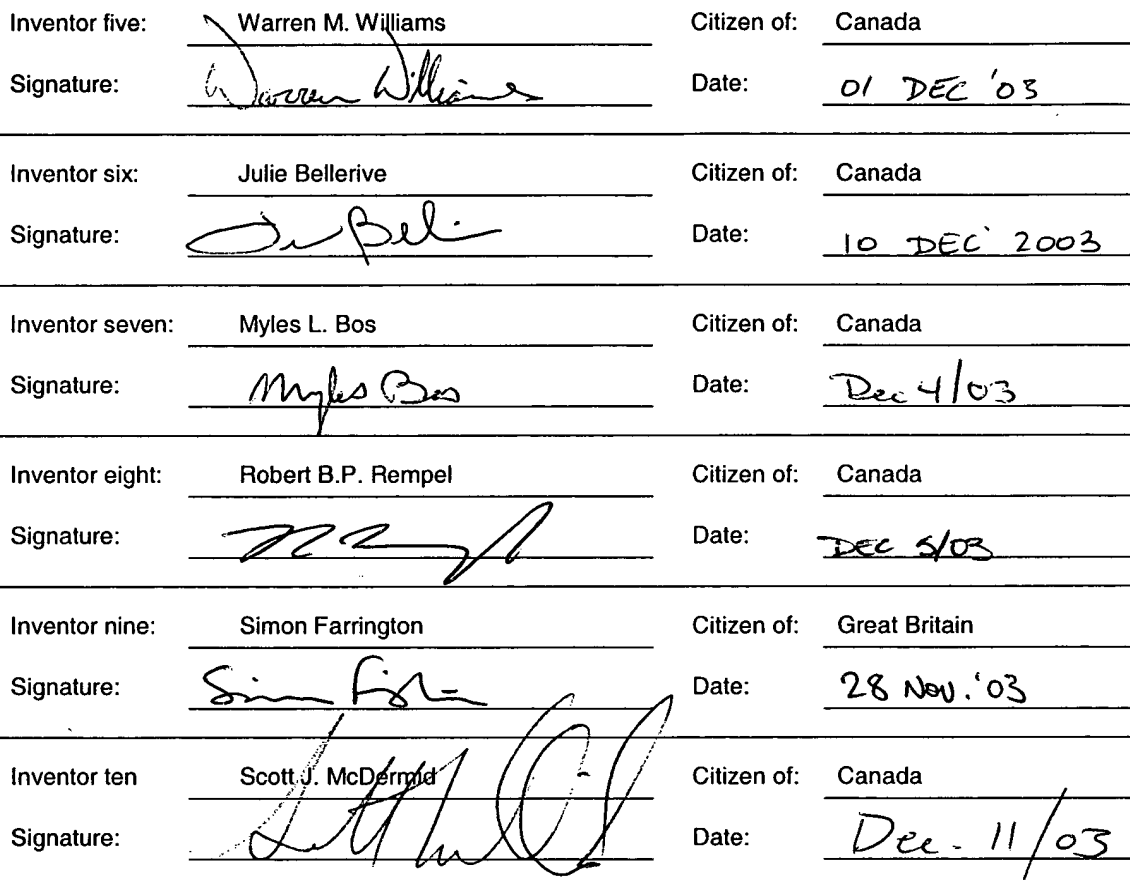 Inventor five: Warren M. Williams Citizen of: Canada
Signature: Warren Williams Date: 01 DEC '03
Inventor six: Julie Bellerive Citizen of: Canada
Signature: Date: 10 DEC 2003
Inventor seven: Myles L. Bos Citizen of: Canada
Signature: Myles Bos Date: Dec 4/03
Inventor eight: Robert B.P. Rempel Citizen of: Canada
Signature: Date: DEC 5/03
Inventor nine: Simon Farrington Citizen of: Great Britain
Signature: Simon Date: 28 Nov. '03
Inventor ten Scott J. McDermid Citizen of: Canada
Signature: Date: Dec. 11/03